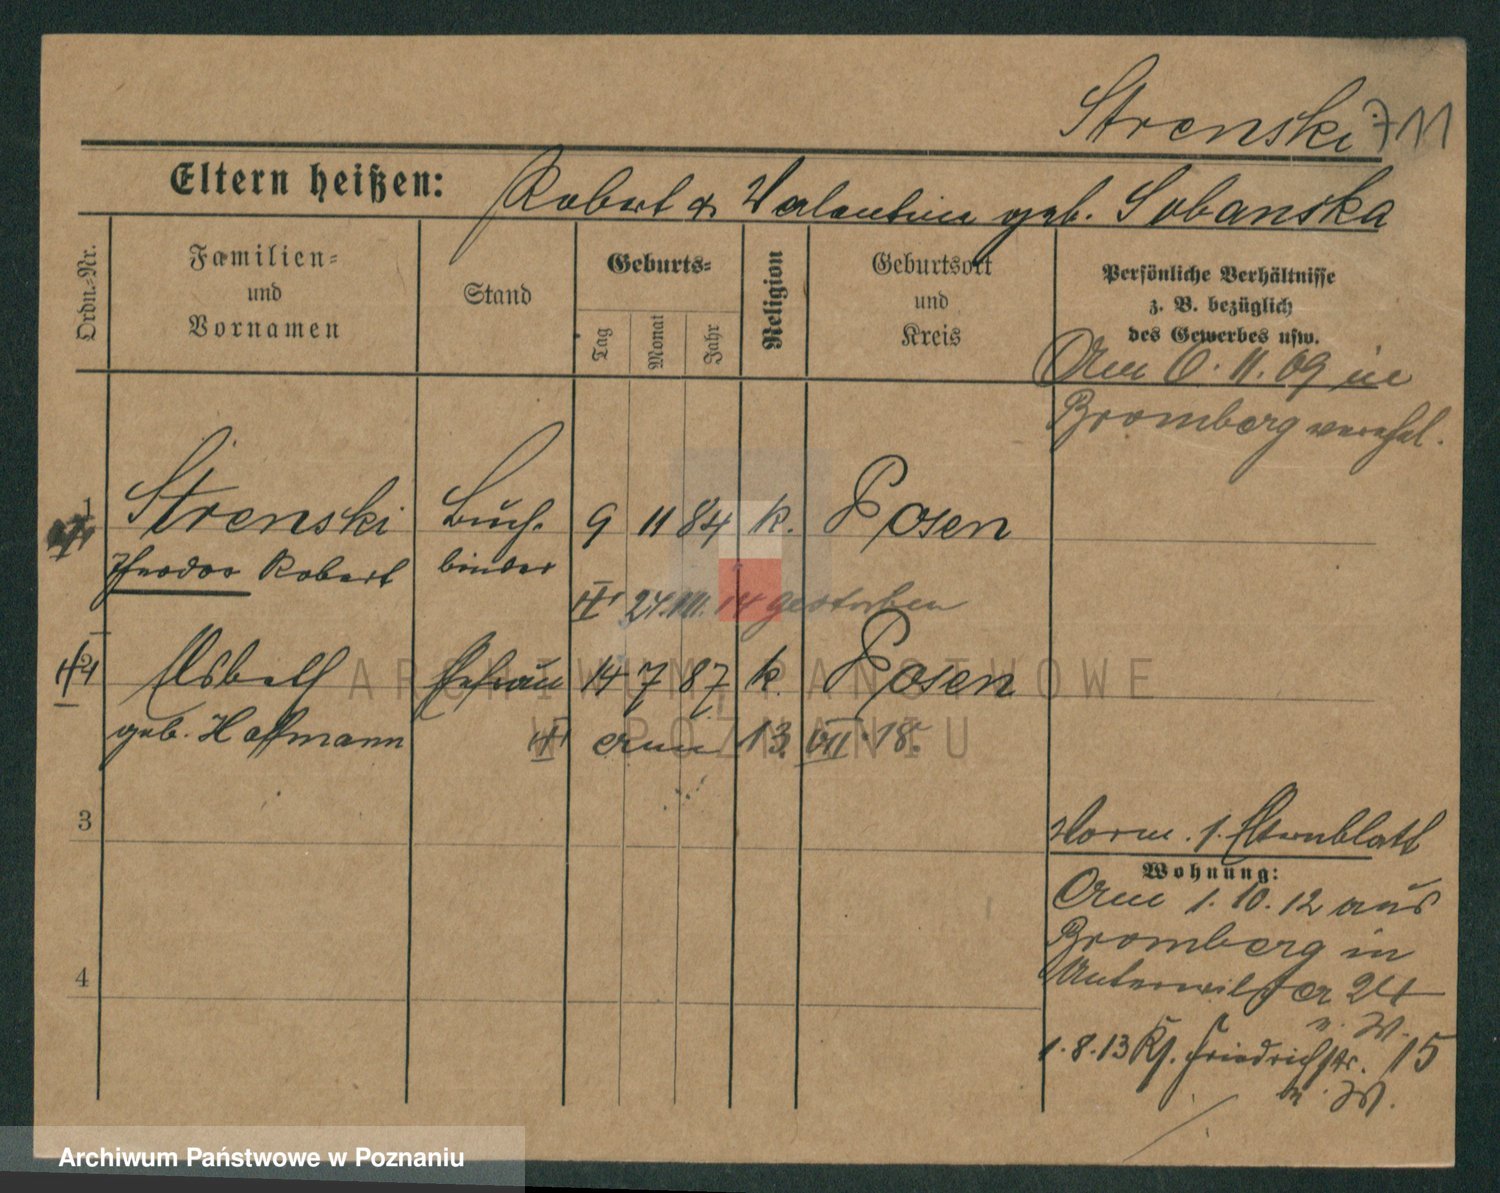 Strenski 711
Eltern heißen: Robert & Valentine geb. Sobanska
Ordn.-Nr.
Familien-
und
Vornamen
Stand
Geburts-
Tag
Monat
Jahr
Religion
Geburtsort
und
Kreis
Persönliche Verhältnisse
z. B. bezüglich
des Gewerbes usw.
Am 6. 11. 09 in
Bromberg verehel.
1 Strenski Buch- 9 11 84 k. Posen
Theodor Robert binder
24. III. 14 gestorben
2 Elsbeth Ehefrau 14 7 87 k. Posen
geb. Hoffmann
am 13. VII. 18.
3
Vorm. 1. Elternblatt
Wohnung:
Am 1. 10. 12 aus
Bromberg in
4
Unterwilda 24
1. 8. 13 Kf. Friedrichstr. 15
ARCHIWUM PAŃSTWOWE
W POZNANIU
Archiwum Państwowe w Poznaniu